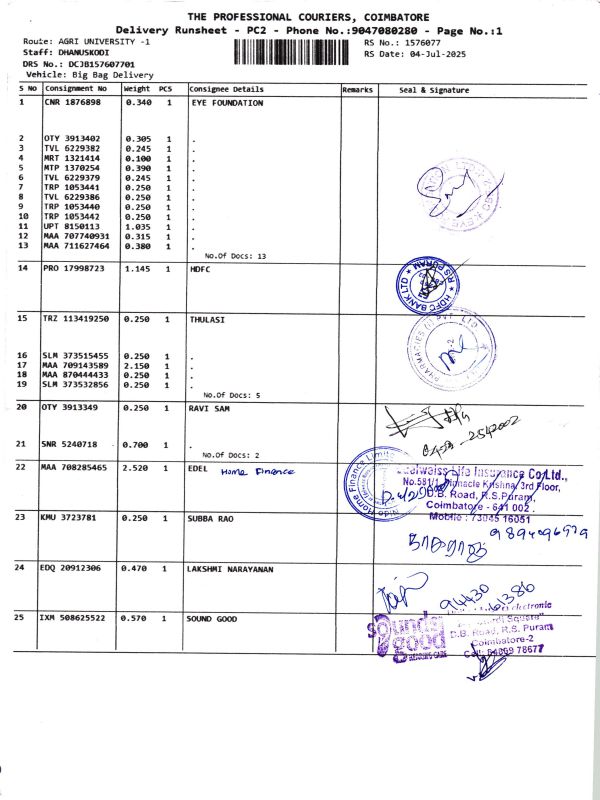 THE PROFESSIONAL COURIERS, COIMBATORE
Delivery Runsheet - PC2 - Phone No.:9047080280 - Page No.:1
Route: AGRI UNIVERSITY -1
RS No.: 1576077
Staff: DHANUSKODI
RS Date: 04-Jul-2025
DRS No.: DCJB157607701
Vehicle: Big Bag Delivery
S No Consignment No Weight PCS Consignee Details Remarks Seal & Signature
1 CNR 1876898 0.340 1 EYE FOUNDATION
2 OTY 3913402 0.305 1 .
3 TVL 6229382 0.245 1 .
4 MRT 1321414 0.100 1 .
5 MTP 1370254 0.390 1 .
6 TVL 6229379 0.245 1 .
7 TRP 1053441 0.250 1 .
8 TVL 6229386 0.250 1 .
9 TRP 1053440 0.250 1 .
10 TRP 1053442 0.250 1 .
11 UPT 8150113 1.035 1 .
12 MAA 707740931 0.315 1 .
13 MAA 711627464 0.380 1 .
No.Of Docs: 13
14 PRO 17998723 1.145 1 HDFC
HDFC BANK LTD * R S PURAM *
15 TRZ 113419250 0.250 1 THULASI
16 SLM 373515455 0.250 1 .
17 MAA 709143589 2.150 1 .
18 MAA 870444433 0.250 1 .
19 SLM 373532856 0.250 1 .
No.Of Docs: 5
20 OTY 3913349 0.250 1 RAVI SAM
21 SNR 5240718 0.700 1 .
No.Of Docs: 2
22 MAA 708285465 2.520 1 EDEL Home Finance
Nido Home Finance Limited
Edelweiss Life Insurance Co Ltd.,
No.581/1, Pinnacle Krishna, 3rd Floor,
D.B. Road, R.S.Puram,
Coimbatore - 641 002
Mobile : 73045 16051
23 KMU 3723781 0.250 1 SUBBA RAO
24 EDQ 20912306 0.470 1 LAKSHMI NARAYANAN
25 IXM 508625522 0.570 1 SOUND GOOD
sounds good
HEARING CARE
electronic
Square"
D.B. Road, R.S. Puram
Coimbatore-2